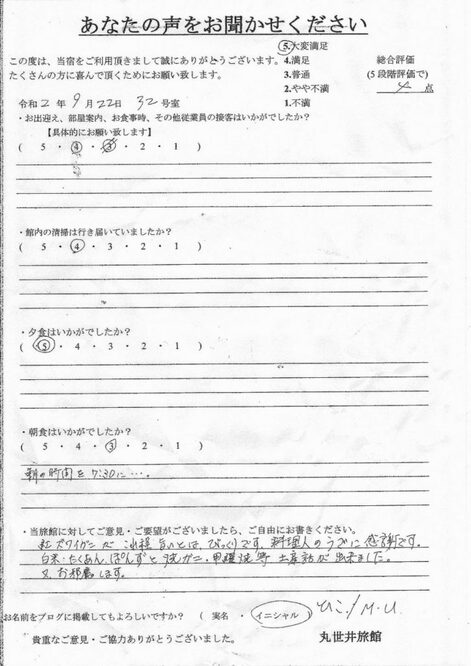 あなたの声をお聞かせください
この度は、当宿をご利用頂きまして誠にありがとうございます。
たくさんの方に喜んで頂くためにお願い致します。
5.大変満足
4.満足
3.普通
2.やや不満
1.不満
総合評価
(5段階評価で)
4 点
令和2年9月22日 32号室
・お出迎え、部屋案内、お食事時、その他従業員の接客はいかがでしたか？
【具体的にお願い致します】
( 5 ・ 4 ・ 3 ・ 2 ・ 1 )
・館内の清掃は行き届いていましたか？
( 5 ・ 4 ・ 3 ・ 2 ・ 1 )
・夕食はいかがでしたか？
( 5 ・ 4 ・ 3 ・ 2 ・ 1 )
・朝食はいかがでしたか？
( 5 ・ 4 ・ 3 ・ 2 ・ 1 )
朝の時間を7:30に…。
・当旅館に対してご意見・ご要望がございましたら、ご自由にお書きください。
紅ズワイガニがこれ程旨いとは、びっくりです。料理人のうでに感謝です。
白米・たくあん、ぽんずと焼ガニ・甲羅焼等 土産話が出来ました。
又、お邪魔します。
お名前をブログに掲載してもよろしいですか？ ( 実名 ・ イニシャル ) M.U
貴重なご意見・ご協力ありがとうございました。
丸世井旅館